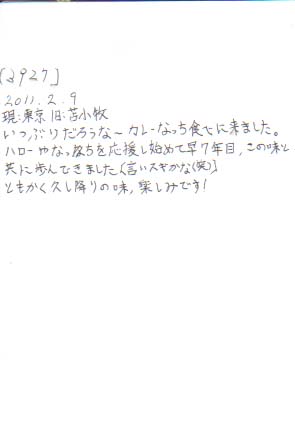 [2927]
2011.2.9
現:東京 旧:苫小牧
いつぶりだろうな～カレーなっち食べに来ました。
ハローやなっち達を応援し始めて早7年目,この味と
共に歩んできました[言いスギかな(笑)]
ともかく久し降りの味,楽しみです!